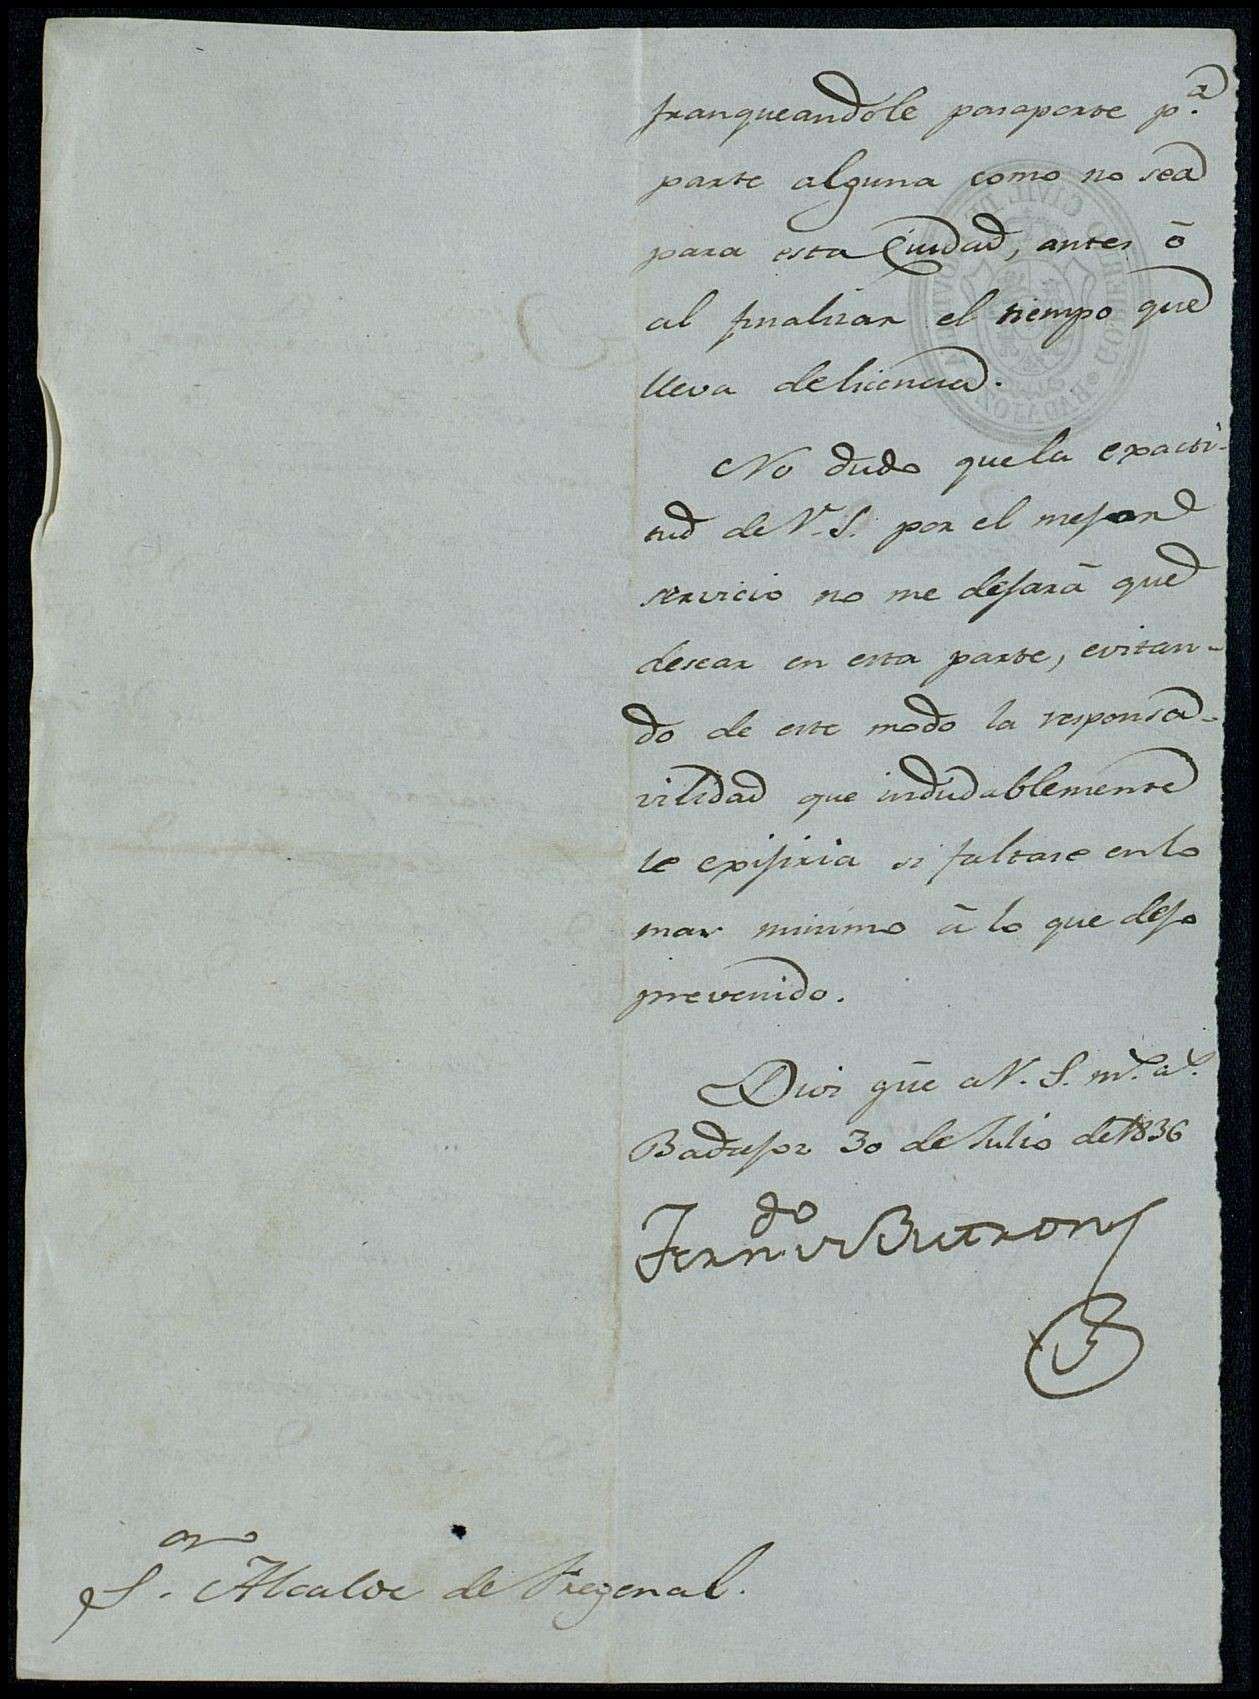 franqueandole pasaporte p.ª
parte alguna como no sea
para esta Ciudad, antes ó
al finalizar el tiempo que
lleva de licencia.
No dudo que la exacti-
tud de V. S. por el mejor
servicio no me dejará que
desear en esta parte, evitan-
do de este modo la responsa-
vilidad que indudablemente
le exijiria si faltase en lo
mas minimo á lo que dejo
prevenido.
Dios gũe a V. S. m.s a.s
Badajoz 30 de Julio de 1836
Fern.do Butron
S.or Alcalde de Fregenal.